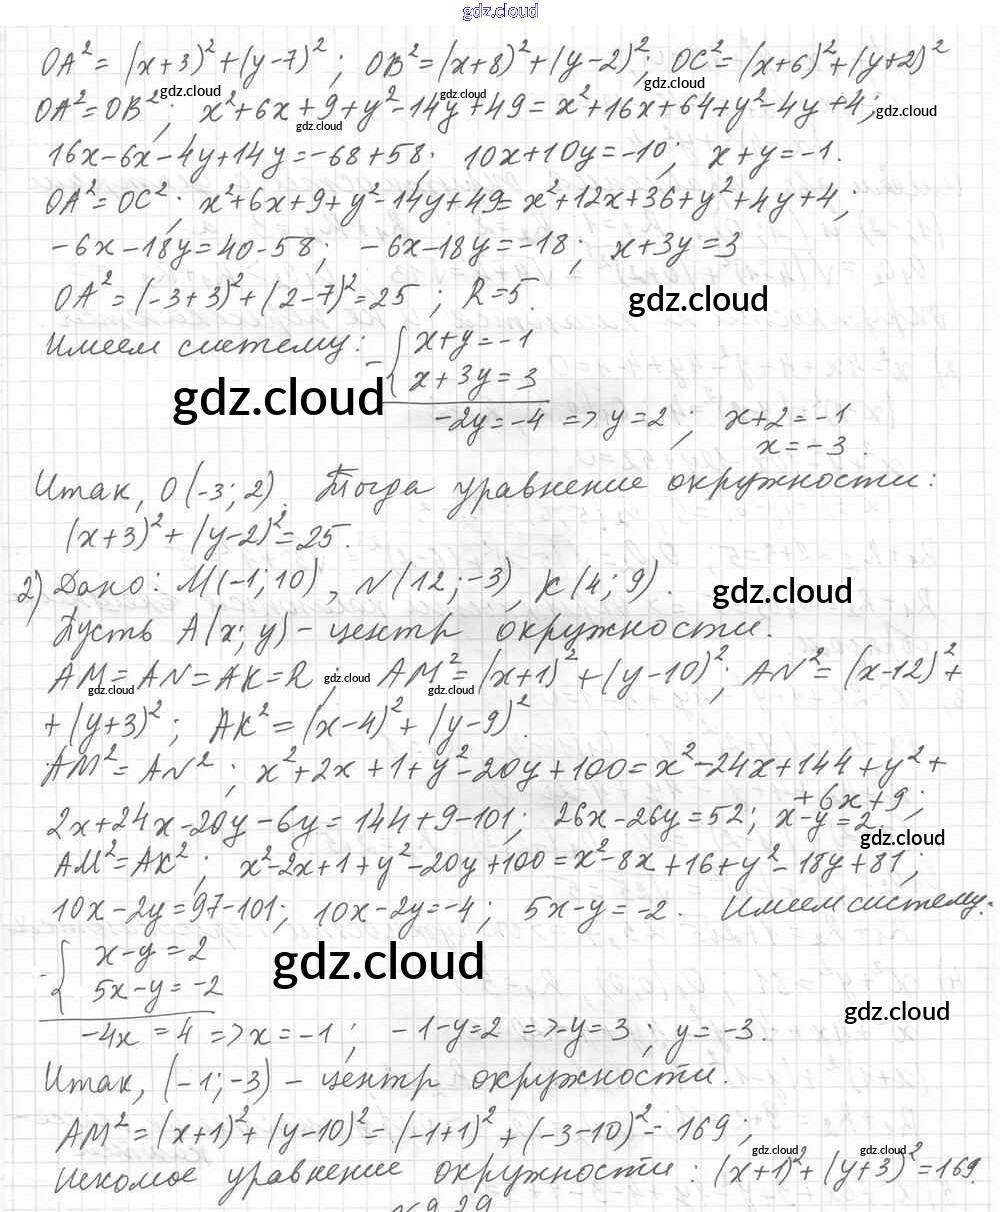 gdz.cloud
OA² = (x+3)² + (y-7)² ; OB² = (x+8)² + (y-2)² ; OC² = (x+6)² + (y+2)²
gdz.cloud gdz.cloud gdz.cloud
OA² = OB² ; x²+6x+9+y²-14y+49 = x²+16x+64+y²-4y+4 ;
gdz.cloud gdz.cloud
16x-6x-4y+14y=-68+58; 10x+10y=-10; x+y=-1.
OA²=OC²; x²+6x+9+y²-14y+49=x²+12x+36+y²+4y+4;
-6x-18y=40-58; -6x-18y=-18; x+3y=3
OA² = (-3+3)²+(2-7)²=25 ; R=5.
gdz.cloud
Имеем систему: - { x+y=-1
x+3y=3
gdz.cloud
-2y=-4 => y=2; x+2=-1
x=-3.
Итак, O(-3; 2). Тогда уравнение окружности:
(x+3)²+(y-2)²=25.
2) Дано: M(-1; 10), N(12; -3), K(4; 9).
gdz.cloud
Пусть A(x; y) - центр окружности.
AM=AN=AK=R ; AM²=(x+1)²+(y-10)²; AN²=(x-12)²+
gdz.cloud gdz.cloud gdz.cloud
+(y+3)²; AK²=(x-4)²+(y-9)².
AM²=AN²; x²+2x+1+y²-20y+100=x²-24x+144+y²+
+6x+9;
2x+24x-20y-6y=144+9-101; 26x-26y=52; x-y=2.
gdz.cloud
AM²=AK²; x²-2x+1+y²-20y+100=x²-8x+16+y²-18y+81;
10x-2y=97-101; 10x-2y=-4; 5x-y=-2. Имеем систему:
- { x-y=2
5x-y=-2
gdz.cloud
gdz.cloud
-4x=4 => x=-1; -1-y=2 => -y=3; y=-3.
Итак, (-1; -3) - центр окружности.
AM²=(x+1)²+(y-10)²=(-1+1)²+(-3-10)²=169;
gdz.cloud gdz.cloud
Искомое уравнение окружности: (x+1)²+(y+3)²=169.